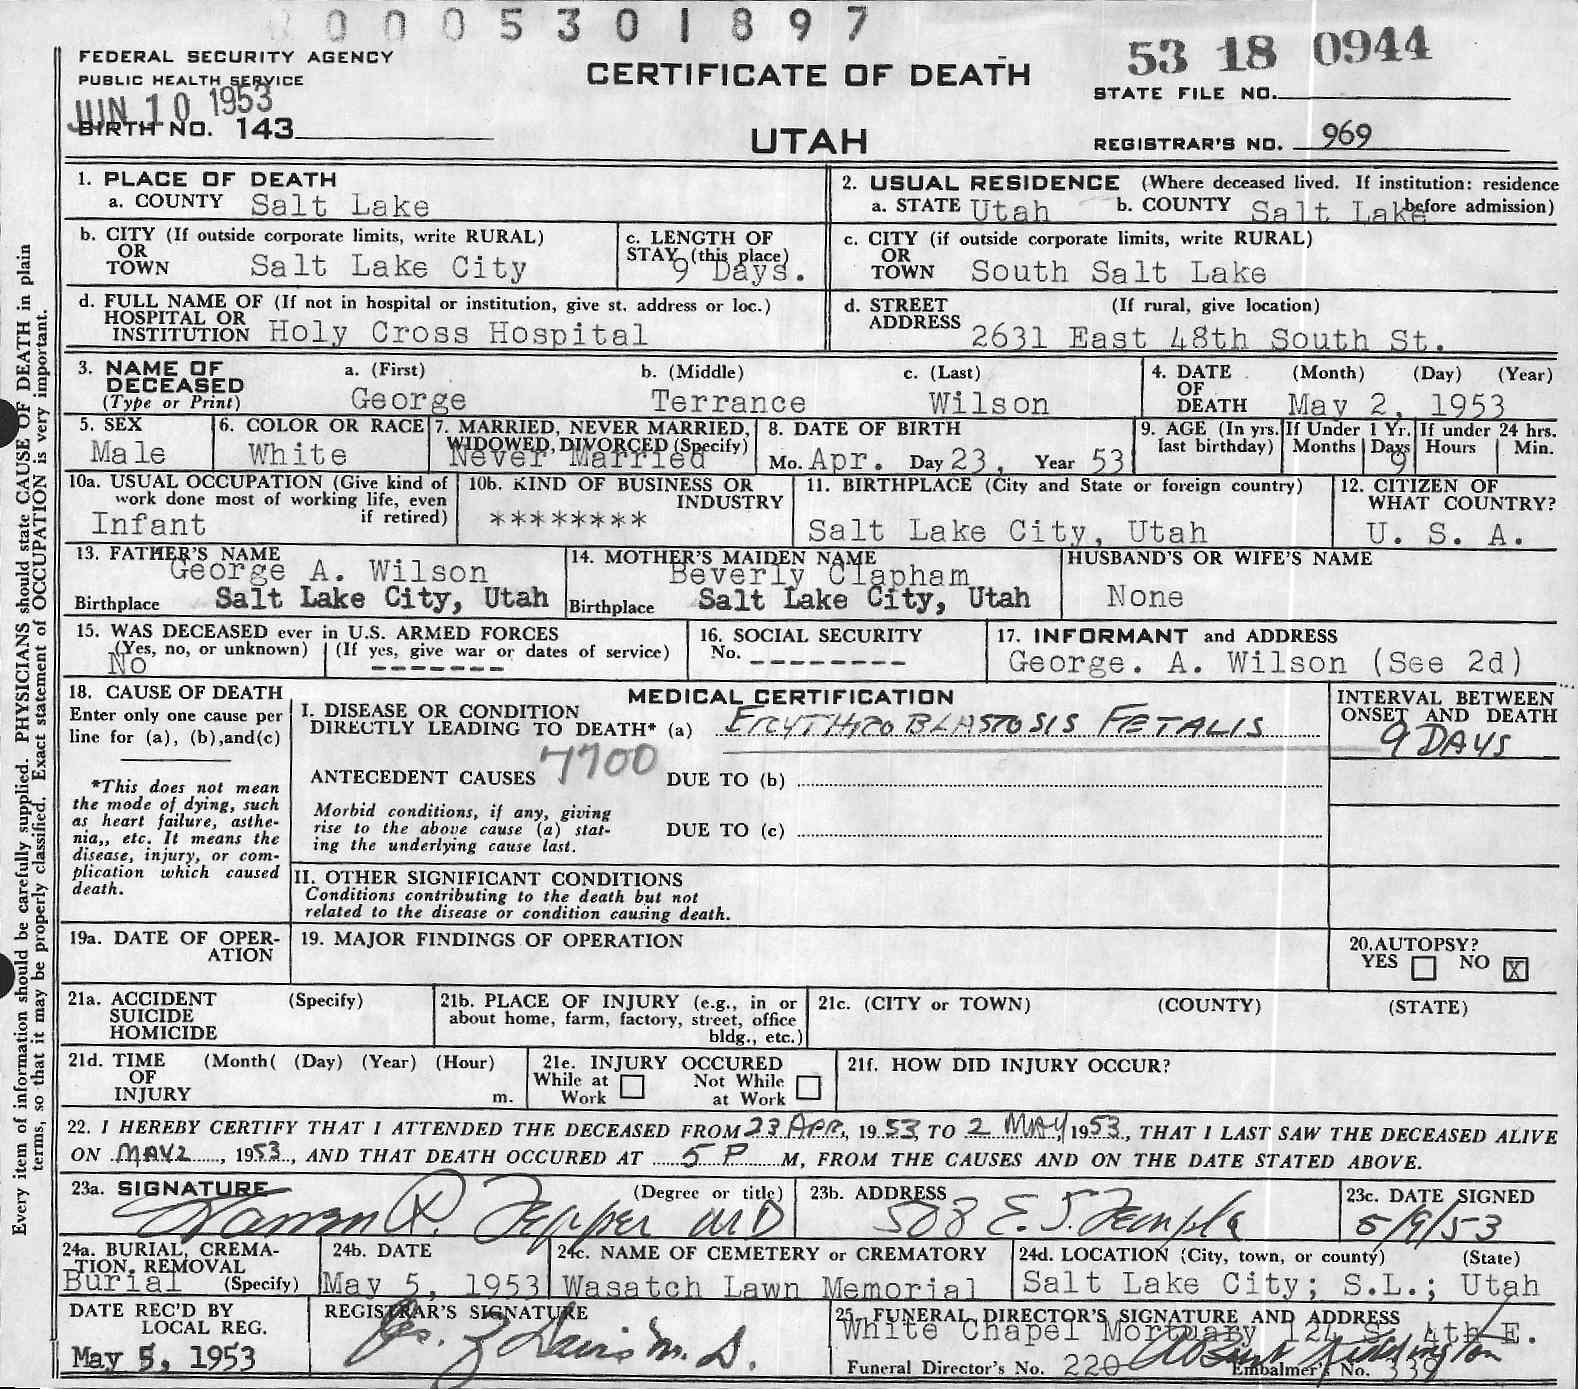 0005301897
FEDERAL SECURITY AGENCY
PUBLIC HEALTH SERVICE
JUN 10 1953
BIRTH NO. 143
CERTIFICATE OF DEATH
UTAH
53 18 0944
STATE FILE NO.
REGISTRAR'S NO. 969
Every item of information should be carefully supplied. PHYSICIANS should state CAUSE OF DEATH in plain
terms, so that it may be properly classified. Exact statement of OCCUPATION is very important.
1. PLACE OF DEATH
a. COUNTY Salt Lake
2. USUAL RESIDENCE (Where deceased lived. If institution: residence
before admission)
a. STATE Utah b. COUNTY Salt Lake
b. CITY (If outside corporate limits, write RURAL)
OR
TOWN Salt Lake City
c. LENGTH OF
STAY (this place)
9 Days.
c. CITY (if outside corporate limits, write RURAL)
OR
TOWN South Salt Lake
d. FULL NAME OF (If not in hospital or institution, give st. address or loc.)
HOSPITAL OR
INSTITUTION Holy Cross Hospital
d. STREET (If rural, give location)
ADDRESS 2631 East 48th South St.
3. NAME OF DECEASED
(Type or Print)
a. (First) b. (Middle) c. (Last)
George Terrance Wilson
4. DATE OF DEATH (Month) (Day) (Year)
May 2, 1953
5. SEX
Male
6. COLOR OR RACE
White
7. MARRIED, NEVER MARRIED,
WIDOWED, DIVORCED (Specify)
Never Married
8. DATE OF BIRTH
Mo. Apr. Day 23, Year 53
9. AGE (In yrs. last birthday)
If Under 1 Yr. Months Days
9
If under 24 hrs. Hours Min.
10a. USUAL OCCUPATION (Give kind of
work done most of working life, even
if retired)
Infant
10b. KIND OF BUSINESS OR
INDUSTRY
********
11. BIRTHPLACE (City and State or foreign country)
Salt Lake City, Utah
12. CITIZEN OF
WHAT COUNTRY?
U. S. A.
13. FATHER'S NAME
George A. Wilson
Birthplace Salt Lake City, Utah
14. MOTHER'S MAIDEN NAME
Beverly Clapham
Birthplace Salt Lake City, Utah
HUSBAND'S OR WIFE'S NAME
None
15. WAS DECEASED ever in U.S. ARMED FORCES
(Yes, no, or unknown) (If yes, give war or dates of service)
No -------
16. SOCIAL SECURITY
No. --------
17. INFORMANT and ADDRESS
George. A. Wilson (See 2d)
18. CAUSE OF DEATH
Enter only one cause per
line for (a), (b),and(c)
*This does not mean
the mode of dying, such
as heart failure, asthe-
nia,, etc. It means the
disease, injury, or com-
plication which caused
death.
MEDICAL CERTIFICATION
I. DISEASE OR CONDITION
DIRECTLY LEADING TO DEATH* (a) ERYTHROBLASTOSIS FETALIS
INTERVAL BETWEEN
ONSET AND DEATH
9 DAYS
7700
ANTECEDENT CAUSES DUE TO (b)
Morbid conditions, if any, giving
rise to the above cause (a) stat-
ing the underlying cause last.
DUE TO (c)
II. OTHER SIGNIFICANT CONDITIONS
Conditions contributing to the death but not
related to the disease or condition causing death.
19a. DATE OF OPER-
ATION
19. MAJOR FINDINGS OF OPERATION
20.AUTOPSY?
YES NO X
21a. ACCIDENT (Specify)
SUICIDE
HOMICIDE
21b. PLACE OF INJURY (e.g., in or
about home, farm, factory, street, office
bldg., etc.)
21c. (CITY or TOWN) (COUNTY) (STATE)
21d. TIME (Month( (Day) (Year) (Hour)
OF
INJURY m.
21e. INJURY OCCURED
While at Work Not While at Work
21f. HOW DID INJURY OCCUR?
22. I HEREBY CERTIFY THAT I ATTENDED THE DECEASED FROM 23 APR, 1953 TO 2 MAY, 1953, THAT I LAST SAW THE DECEASED ALIVE
ON MAY 2, 1953, AND THAT DEATH OCCURED AT 5 P M, FROM THE CAUSES AND ON THE DATE STATED ABOVE.
23a. SIGNATURE (Degree or title)
Warren R. Tepper MD
23b. ADDRESS
508 E. S. Temple
23c. DATE SIGNED
5/9/53
24a. BURIAL, CREMA-
TION, REMOVAL
Burial (Specify)
24b. DATE
May 5, 1953
24c. NAME OF CEMETERY or CREMATORY
Wasatch Lawn Memorial
24d. LOCATION (City, town, or county) (State)
Salt Lake City; S.L.; Utah
DATE REC'D BY
LOCAL REG.
May 5, 1953
REGISTRAR'S SIGNATURE
Davis M. D.
25. FUNERAL DIRECTOR'S SIGNATURE AND ADDRESS
White Chapel Mortuary 124 S. 4th E.
Funeral Director's No. 220 Embalmer's No. 339